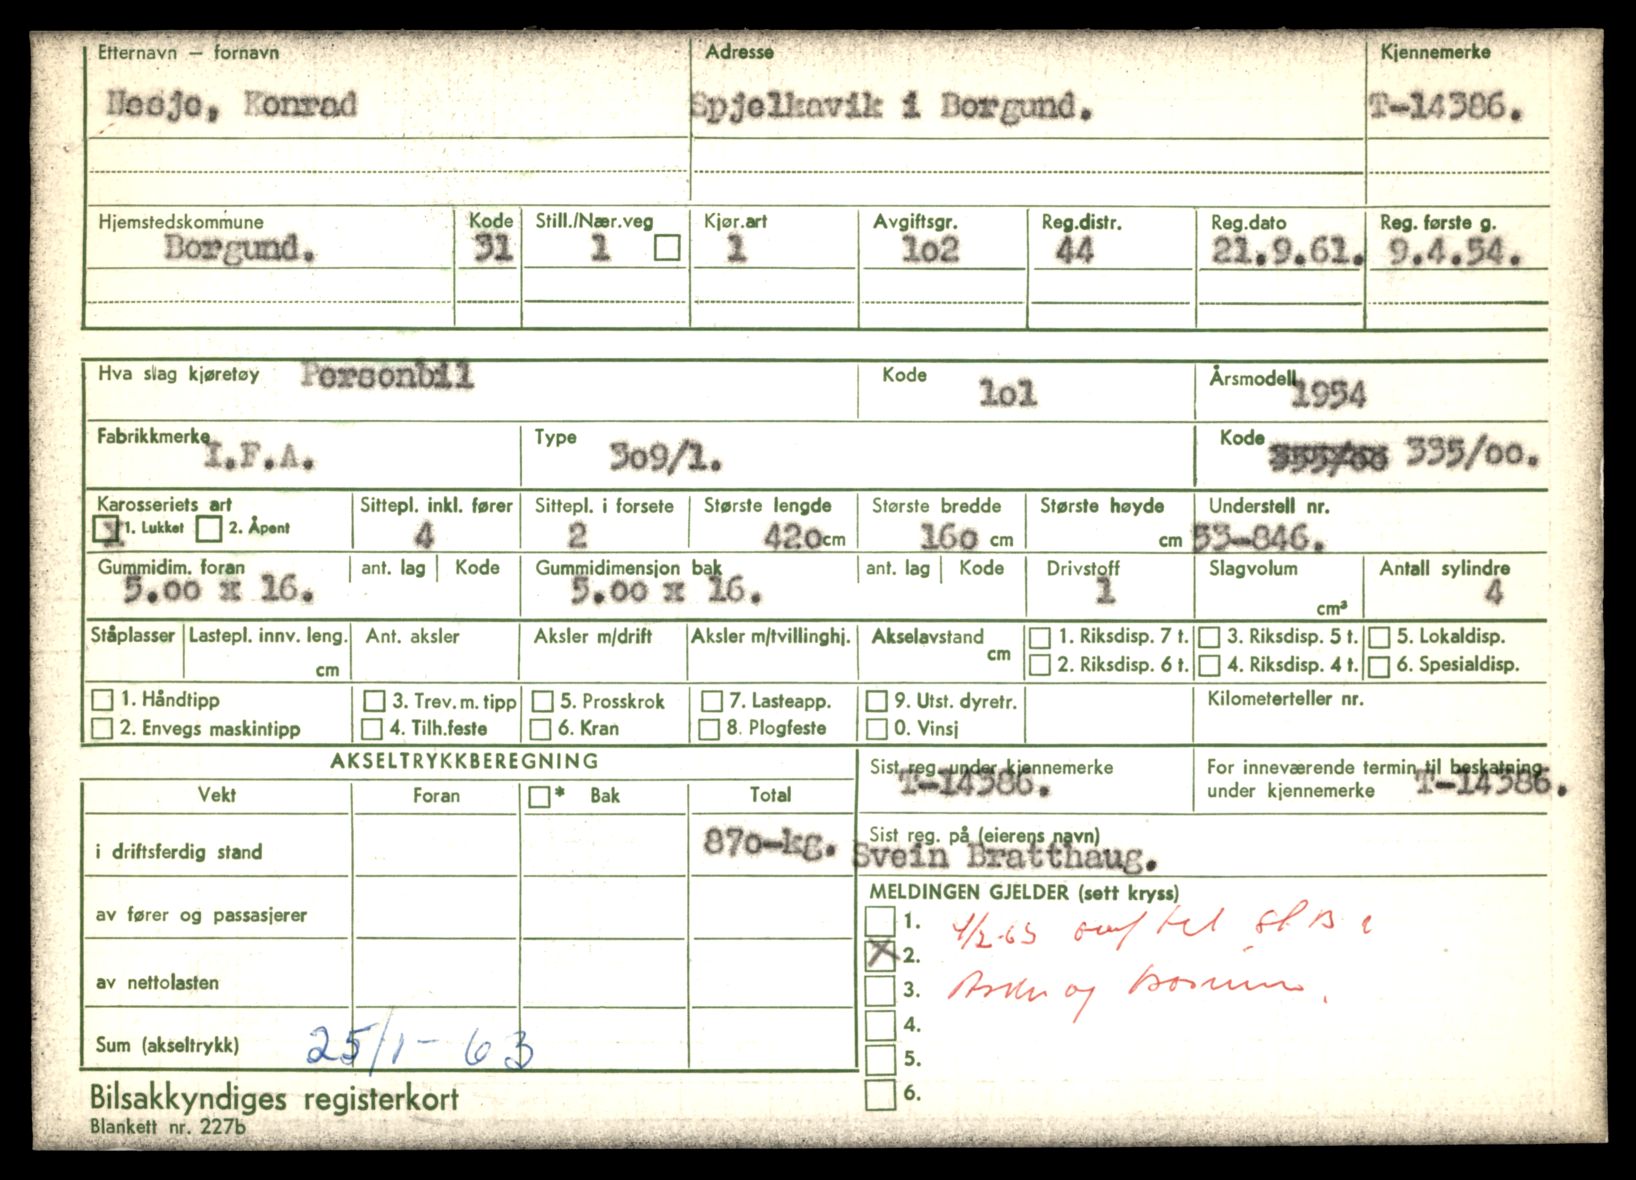 Etternavn — fornavn Adresse Kjennemerke
Nesje, Konrad Spjelkavik i Borgund. T-14386.
Hjemstedskommune Kode Still./Nær.veg Kjør.art Avgiftsgr. Reg.distr. Reg.dato Reg. første g.
Borgund. 31 1 1 1o2 44 21.9.61. 9.4.54.
Hva slag kjøretøy Personbil Kode 1o1 Årsmodell 1954
Fabrikkmerke I.F.A. Type 3o9/1. Kode 335/oo.
Karosseriets art Sittepl. inkl. fører Sittepl. i forsete Største lengde Største bredde Største høyde Understell nr.
1 1. Lukket 2. Åpent 4 2 42o cm 16o cm cm 53-846.
Gummidim. foran ant. lag Kode Gummidimensjon bak ant. lag Kode Drivstoff Slagvolum Antall sylindre
5.oo x 16. 5.oo x 16. 1 cm³ 4
Ståplasser Lastepl. innv. leng. Ant. aksler Aksler m/drift Aksler m/tvillinghj. Akselavstand 1. Riksdisp. 7 t. 3. Riksdisp. 5 t. 5. Lokaldisp.
cm cm 2. Riksdisp. 6 t. 4. Riksdisp. 4 t. 6. Spesialdisp.
1. Håndtipp 3. Trev. m. tipp 5. Prosskrok 7. Lasteapp. 9. Utst. dyretr. Kilometerteller nr.
2. Envegs maskintipp 4. Tilh.feste 6. Kran 8. Plogfeste 0. Vinsj
AKSELTRYKKBEREGNING Sist reg. under kjennemerke For inneværende termin til beskatning
T-14386. under kjennemerke T-14386.
Vekt Foran * Bak Total
Sist reg. på (eierens navn)
i driftsferdig stand 87o-kg. Svein Bratthaug.
MELDINGEN GJELDER (sett kryss)
av fører og passasjerer 1. 4/2-63
X 2.
av nettolasten 3. og
4.
Sum (akseltrykk) 25/1-63
5.
6.
Bilsakkyndiges registerkort
Blankett nr. 227b